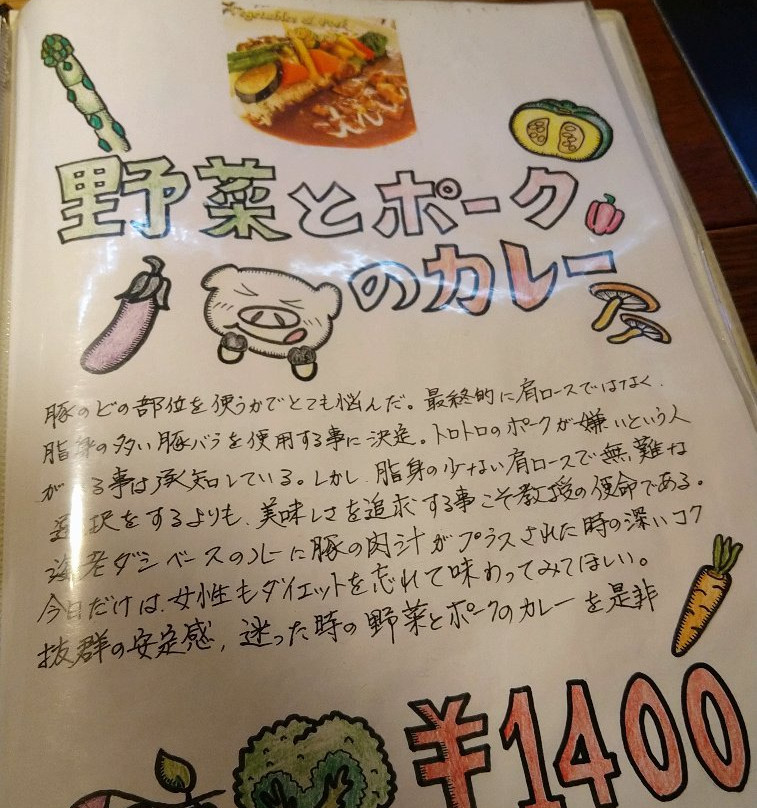 Vegetables & Pork
野菜とポーク
のカレー
豚のどの部位を使うかでとても悩んだ。最終的に肩ロースではなく、
脂身の多い豚バラを使用する事に決定。トロトロのポークが嫌いという人
が る事は承知している。しかし、脂身の少ない肩ロースで無難な
選択をするよりも、美味しさを追求する事こそ教授の使命である。
海老ダシベースのルーに豚の肉汁がプラスされた時の深いコク
今日だけは、女性もダイエットを忘れて味わってみてほしい。
抜群の安定感、迷った時の野菜とポークのカレーを是非
¥1400